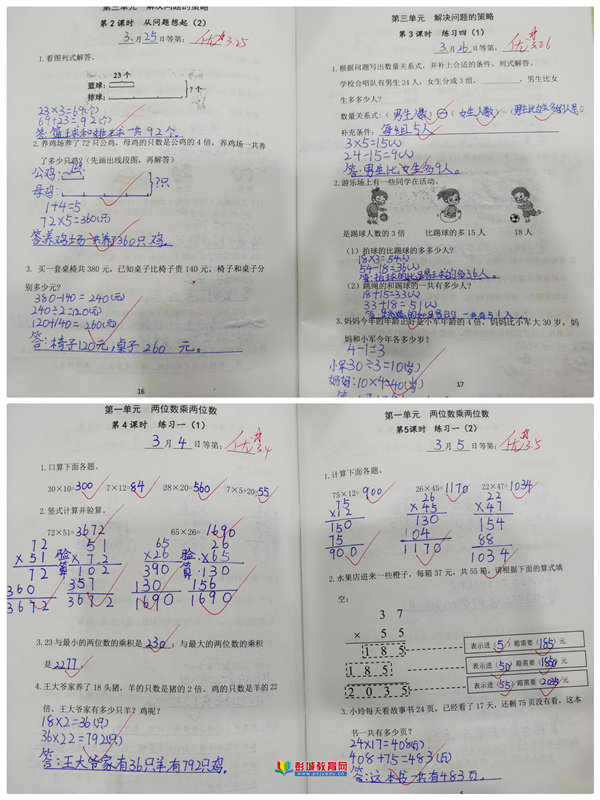 第三单元 解决问题的策略
第2课时 从问题想起（2）
3月25日等第：优 3.25
1.看图列式解答。
23个
篮球：
排球：
?个
23×3=69(个)
69+23=92(个)
答：篮球和排球一共92个。
2.养鸡场养了72只公鸡，母鸡的只数是公鸡的4倍，养鸡场一共养
了多少只鸡？（先画出线段图，再解答）
公鸡：
母鸡：
?只
1+4=5
72×5=360(只)
答养鸡场一共养了360只鸡。
3. 买一套桌椅共380元，已知桌子比椅子贵140元，椅子和桌子分
别多少元？
380-140=240(元)
240÷2=120(元)
120+140=260(元)
答：椅子120元，桌子260元。
16
第三单元 解决问题的策略
第3课时 练习四（1）
3月26日等第：优 3.26
1.根据问题写出数量关系式，并补上合适的条件，列式解答。
学校合唱队有男生24人，女生分成3组，，男生比女
生多多少人？
数量关系式：（男生人数）－（女生人数）＝（男生比女生多的人数）
补充条件：每组5人
3×5=15(人)
24-15=9(人)
答：男生比女生多9人。
2.游乐场上有一些同学在活动。
是踢球人数的3倍 比踢球的多15人 18人
（1）拍球的比踢球的多多少人？
18×3=54(人)
54-18=36(人)
（2）跳绳的和踢球的一共有多少人？
18+15=33(人)
33+18=51(人)
3.妈妈今年的年龄正好是小军年龄的4倍，妈妈比小军大30岁，妈
妈和小军今年各多少岁？
4-1=3
小军30÷3=10(岁)
妈妈：10×4=40(岁)
17
第一单元 两位数乘两位数
第4课时 练习一（1）
3月4日等第：优 3.4
1.口算下面各题。
30×10=300 7×12=84 28×20=560 7×5+20=55
2.竖式计算并验算。
72×51=3672 65×26=1690
72 验算：51 65 验算：26
×51 ×72 ×26 ×65
72 102 390 130
360 357 130 156
3672 3672 1690 1690
3.23与最小的两位数的乘积是230；与最大的两位数的乘积
是2277。
4.王大爷家养了18头猪，羊的只数是猪的2倍。鸡的只数是羊的22
倍。王大爷家有多少只羊？鸡呢？
18×2=36(只)
36×22=792(只)
答：王大爷家有36只羊有792只鸡。
第一单元 两位数乘两位数
第5课时 练习一（2）
3月5日等第：优 3.5
1.计算下面各题。
75×12=900 26×45=1170 22×47=1034
75 26 22
×12 ×45 ×47
150 130 154
75 104 88
900 1170 1034
2.水果店进来一些橙子，每箱37元，共55箱，请根据下面的算式填
空：
37
×55
185 表示进（5）箱需要（185）元
185 表示进（50）箱需要（1850）元
2035 表示进（55）箱需要（2035）元
3.小玲每天看故事书24页，已经看了17天，还剩75页没有看，这本
书一共有多少页？
24×17=408(页)
408+75=483(页)
答：这本书一共有483页。
5
彭城教育网
www.pcjyedu.cn